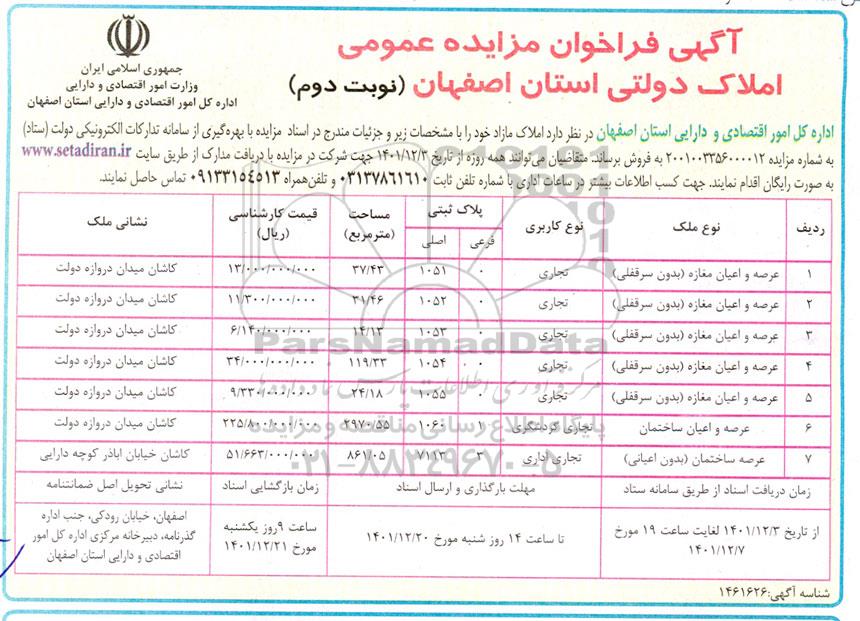 آگهی فراخوان مزایده عمومی
املاک دولتی استان اصفهان (نوبت دوم)
جمهوری اسلامی ایران
وزارت امور اقتصادی و دارایی
اداره کل امور اقتصادی و دارایی استان اصفهان
اداره کل امور اقتصادی و دارایی استان اصفهان در نظر دارد املاک مازاد خود را با مشخصات زیر و جزئیات مندرج در اسناد مزایده با بهره‌گیری از سامانه تدارکات الکترونیکی دولت (ستاد)
به شماره مزایده ۲۰۰۱۰۰۳۳۵۶۰۰۰۰۱۲ به فروش برساند. متقاضیان می‌توانند همه روزه از تاریخ ۱۴۰۱/۱۲/۳ جهت شرکت در مزایده با دریافت مدارک از طریق سایت www.setadiran.ir
به صورت رایگان اقدام نمایند. جهت کسب اطلاعات بیشتر در ساعات اداری با شماره تلفن ثابت ۰۳۱۳۷۸۶۱۶۱۰ و تلفن همراه ۰۹۱۳۳۱۵۴۵۱۳ تماس حاصل نمایند.
ردیف نوع ملک نوع کاربری پلاک ثبتی مساحت (مترمربع) قیمت کارشناسی (ریال) نشانی ملک
فرعی اصلی
۱ عرصه و اعیان مغازه (بدون سرقفلی) تجاری ۰ ۱۰۵۱ ۳۷/۴۳ ۱۳/۰۰۰/۰۰۰/۰۰۰ کاشان میدان دروازه دولت
۲ عرصه و اعیان مغازه (بدون سرقفلی) تجاری ۰ ۱۰۵۲ ۳۱/۴۶ ۱۱/۳۰۰/۰۰۰/۰۰۰ کاشان میدان دروازه دولت
۳ عرصه و اعیان مغازه (بدون سرقفلی) تجاری ۰ ۱۰۵۳ ۱۴/۱۳ ۶/۱۴۰/۰۰۰/۰۰۰ کاشان میدان دروازه دولت
۴ عرصه و اعیان مغازه (بدون سرقفلی) تجاری ۰ ۱۰۵۴ ۱۱۹/۳۳ ۳۴/۰۰۰/۰۰۰/۰۰۰ کاشان میدان دروازه دولت
۵ عرصه و اعیان مغازه (بدون سرقفلی) تجاری ۰ ۱۰۵۵ ۲۴/۱۸ ۹/۳۳۰/۰۰۰/۰۰۰ کاشان میدان دروازه دولت
۶ عرصه و اعیان ساختمان تجاری گردشگری ۱ ۱۰۶۰ ۲۹۷۰/۵۵ ۲۲۵/۸۰۰/۰۰۰/۰۰۰ کاشان میدان دروازه دولت
۷ عرصه ساختمان (بدون اعیانی) تجاری اداری ۳ ۷۱۱۳ ۸۶۱/۰۵ ۵۱/۶۶۳/۰۰۰/۰۰۰ کاشان خیابان اباذر کوچه دارایی
زمان دریافت اسناد از طریق سامانه ستاد مهلت بارگذاری و ارسال اسناد زمان بازگشایی اسناد نشانی تحویل اصل ضمانتنامه
از تاریخ ۱۴۰۱/۱۲/۳ لغایت ساعت ۱۹ مورخ ۱۴۰۱/۱۲/۷
تا ساعت ۱۴ روز شنبه مورخ ۱۴۰۱/۱۲/۲۰
ساعت ۹ روز یکشنبه
مورخ ۱۴۰۱/۱۲/۲۱
اصفهان، خیابان رودکی، جنب اداره
گذرنامه، دبیرخانه مرکزی اداره کل امور
اقتصادی و دارایی استان اصفهان
شناسه آگهی: ۱۴۶۱۶۲۶
ParsNamadData
پایگاه اطلاع رسانی مناقصه و مزایده
۰۲۱-۸۸۳۴۹۶۷۰-۵